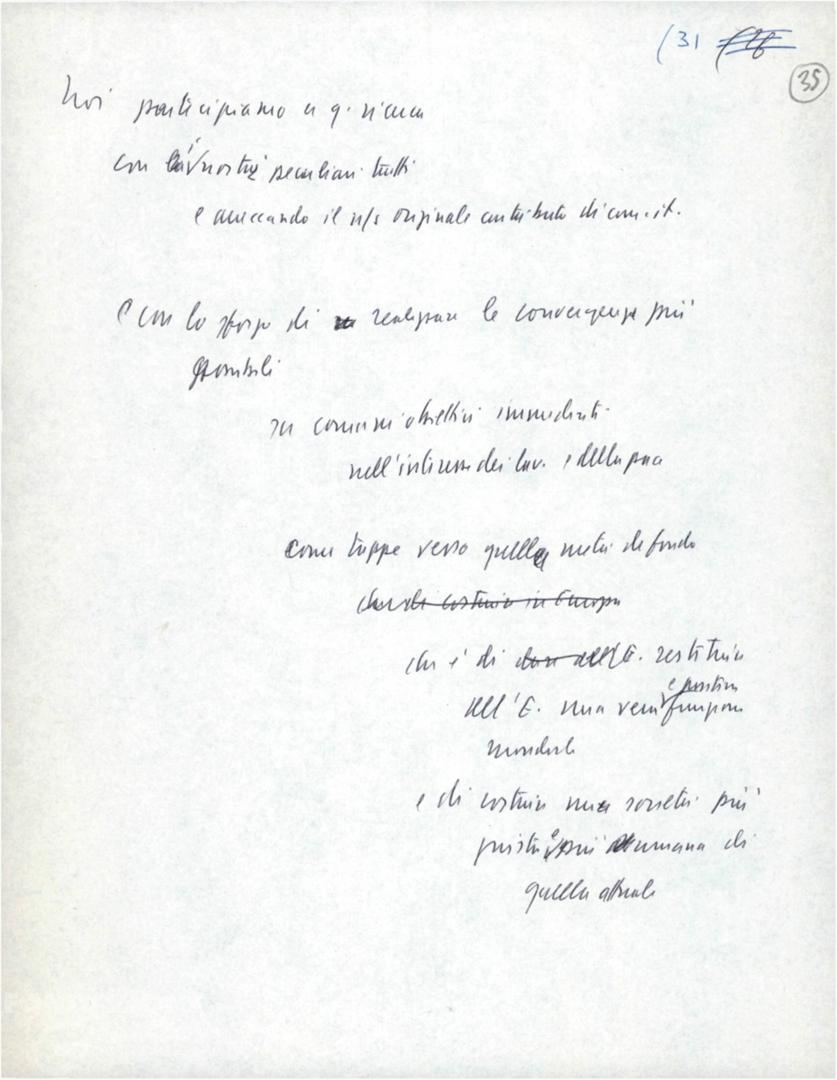 (31
35
Noi partecipiamo a q. ricerca
con i nostri peculiari tratti
e arrecando il n/s originale contributo di com. it.
e con lo sforzo di realizzare le convergenze più
possibili
su comuni obiettivi immediati
nell'interesse dei lav. e della pace
come tappe verso quella meta di fondo
che è di costruire in Europa
che è di dare all'E. restituire
all'E. una vera e positiva funzione
mondiale
e di costruire una società più
giusta e più umana di
quella attuale